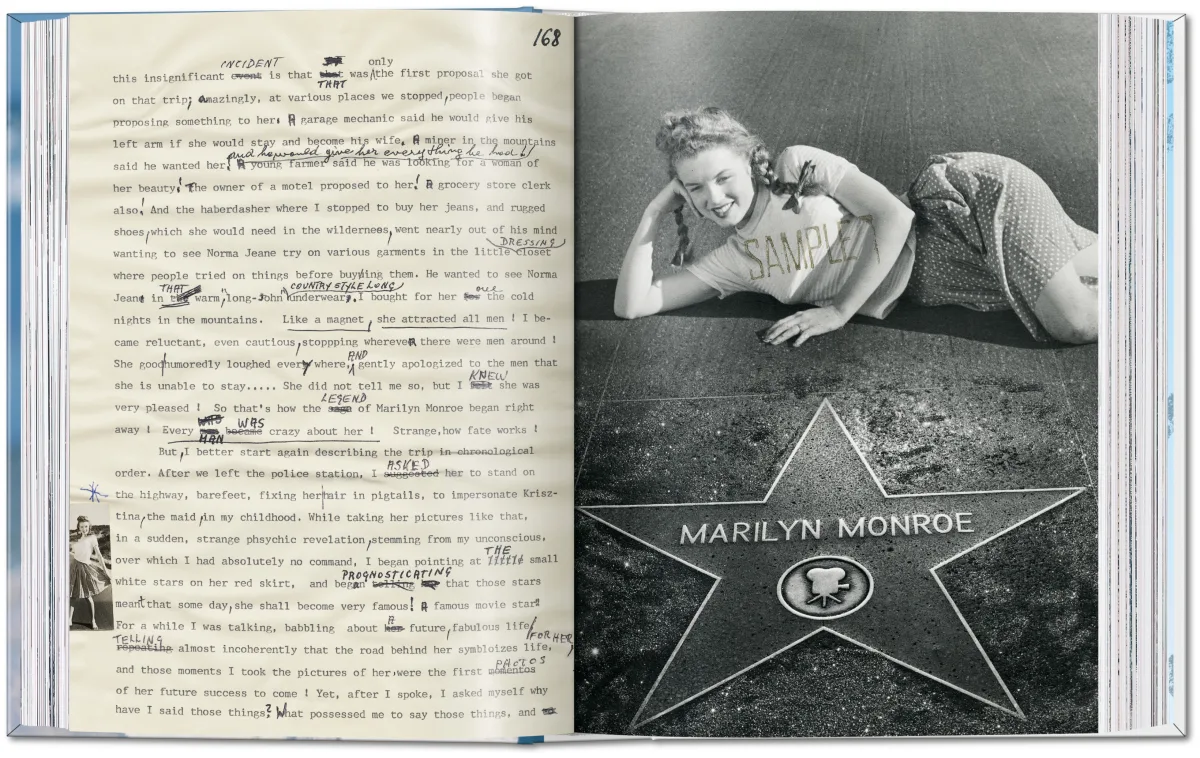 168
INCIDENT only
this insignificant event is that that was the first proposal she got
THAT
on that trip; amazingly, at various places we stopped, people began
proposing something to her. A garage mechanic said he would give his
left arm if she would stay and become his wife. A miner in the mountains
and he would give her everything he had!
said he wanted her! A young farmer said he was looking for a woman of
her beauty! The owner of a motel proposed to her! A grocery store clerk
also! And the haberdasher where I stopped to buy her jeans, and rugged
shoes, which she would need in the wilderness, went nearly out of his mind
DRESSING
wanting to see Norma Jeane try on various garments in the little closet
where people tried on things before buying them. He wanted to see Norma
THAT COUNTRY STYLE LONG one
Jeane in warm, "long-John" underwear. I bought for her for the cold
nights in the mountains. Like a magnet, she attracted all men ! I be-
came reluctant, even cautious, stoppping wherever there were men around !
AND
She goodhumoredly loughed every where, gently apologized to the men that
KNEW
she is unable to stay..... She did not tell me so, but I felt she was
LEGEND
very pleased ! So that's how the saga of Marilyn Monroe began right
WAS
away ! Every became crazy about her ! Strange, how fate works !
MAN
But, I better start again describing the trip in chronological
ASKED
order. After we left the police station, I suggested her to stand on
the highway, barefeet, fixing her hair in pigtails, to impersonate Krisz-
tina, the maid in my childhood. While taking her pictures like that,
in a sudden, strange phsychic revelation, stemming from my unconscious,
THE
over which I had absolutely no command, I began pointing at little small
PROGNOSTICATING
white stars on her red skirt, and began telling her that those stars
meant that some day, she shall become very famous! A famous movie star!
A
For a while I was talking, babbling about her future, fabulous life!
TELLING FOR HER
repeating almost incoherently that the road behind her symbloizes life,
PHOTOS
and those moments I took the pictures of her, were the first momentos
of her future success to come ! Yet, after I spoke, I asked myself why
have I said those things? What possessed me to say those things, and
SAMPLE
MARILYN MONROE